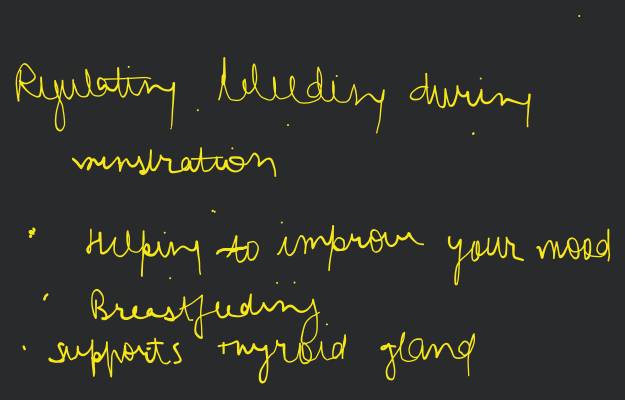 Regulating bleeding during
menstration
• Helping to improve your mood
• Breastfeeding
• supports thyroid gland